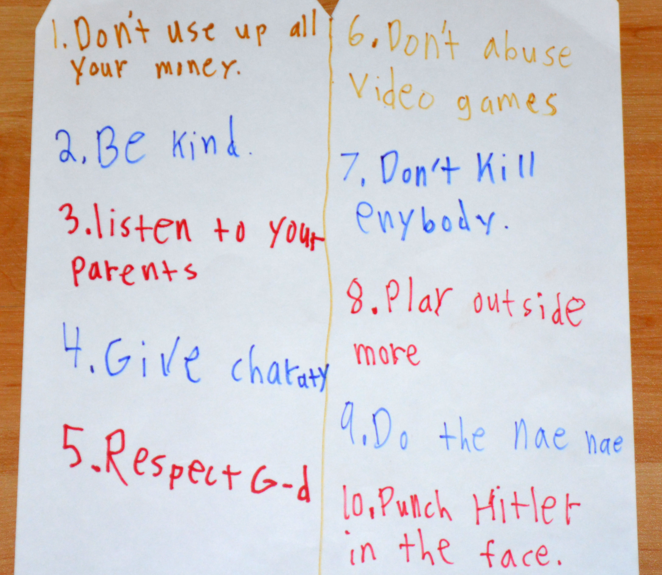 1. Don't use up all
your money.
2. Be kind.
3. listen to your
parents
4. Give charaty
5. Respect G-d
6. Don't abuse
video games
7. Don't Kill
enybody.
8. Play outside
more
9. Do the nae nae
10. Punch Hitler
in the face.